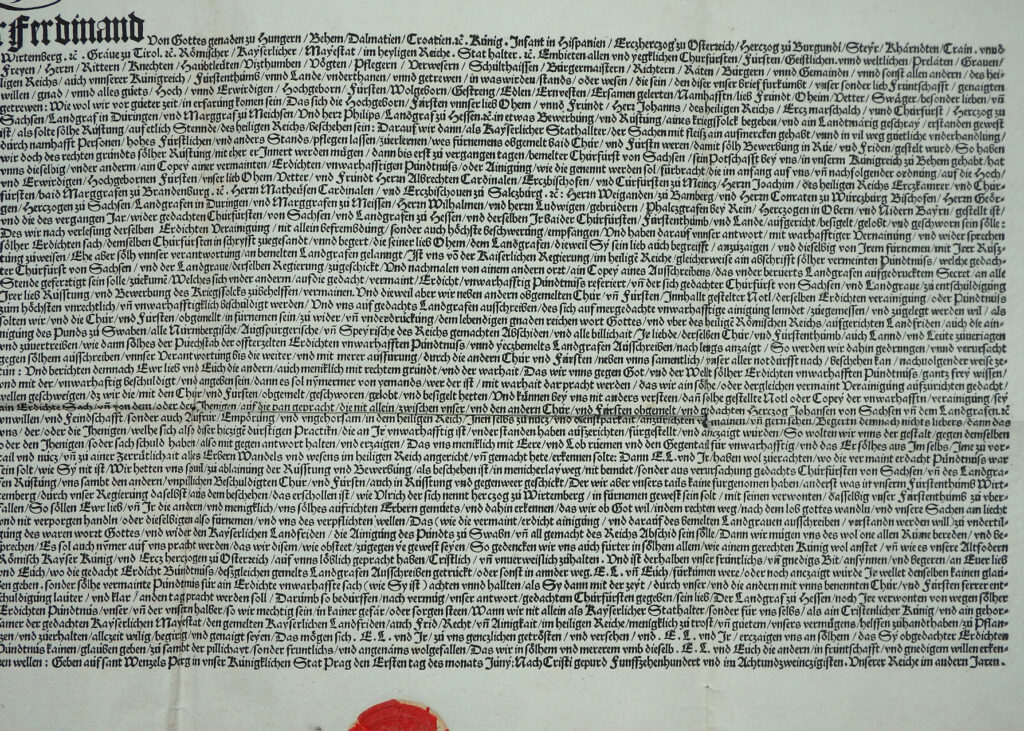 r Ferdinand Von Gottes genaden zu Hungern / Behem / Dalmatien / Croatien.ꝛc. Künig. Infant in Hispanien / Erczherczog zu Osterreich / Herczog zu Burgundi / Steyr / Khärndten / Crain. vnnd
Wirtemberg. ꝛc. Graue zu Tirol. ꝛc. Römischer / Kayserlicher / Mayestat / im heyligen Reiche. Stathalter. ꝛc. Embieten allen vnd yegklichen Churfürsten / Fürsten / Geistlichen. vnnd weltlichen Prelaten / Grauen /
Freyen / Herrn / Rittern / Knechten / Haubtleüten / Vizthumben / Vögten / Pflegern / Verwesern / Schulthaissen / Bürgermaistern / Richtern / Räten / Bürgern / vnnd Gemaindn / vnnd sonst allen andern / des hei-
ligen Reichs / auch vnnserer Künigreich / Fürstenthumb / vnnd Lande / vnderthanen / vnnd getrewen / in waswirden / stands / oder wesen / die sein / den diser vnser brief fürkumbt / vnser sonder lieb Fruntschafft / genaigten
willen / gnad / vnnd alles guets / Hoch / vnnd Erwirdigen / Hochgeborn / Fürsten / Wolgeborn / Gestreng / Edlen / Ernvesten / Ersamen gelerten / Namhafften / lieb Fründt / Ohem / Vetter / Swäger / besonder lieben / vñ
getrewen: Wie wol wir vor güeter zeit / in erfarung komen sein / Das sich die Hochgeborn / Fürsten vnnser lieb Ohem / vnnd Fründt / Herr Johanns / des heiligen Reichs / Ercz marschalch / vnd / Chürfürst / Herczog zu
Sachsen / Landgraf in Düringen / vnd Marggraf zu Meichsen / Vnd herr Philips / Landgraf zu Hessen. ꝛc. in etwas Bewerbung / vnd Rüstung / aines kriegsfolck begeben / vnd ain Landtmärigs geschray / erstanden gewest
ist / als solte sölhe Rüstung / auf etlich Stennde des heiligen Reichs / beschehen sein: Darauf wir dann / als Kayserlicher Stathallter / der Sachen mit fleiß ain aufmercken gehabt / vnnd in vil weg güetlich vnderhandlung /
durch namhafft Personen / hohes Fürstlichen / vnd anders Stands / pflegen lassen / zuerlernen / wes fürnemens obgemelt baid Chür / vnd Fürsten weren / damit sölh Bewerbung in Rüe / vnd Friden / gestelt wurd / So haben
wir doch des rechten gründts sölher Rüstung / nit eher erinnert werden mügen / dann bis erst zu vergangen tagen / bemelter Chürfürst von Sachsen / sein Potschafft bey vns / in vnserm Künigreich zu Behem gehabt / hat
vnns dieselbig / vnder anderm / ain Copey ainer vermainten / Erdichten / vnwarhafftigen Pündtnuß / oder Ainigung / wie die genennt werden sol / fürbracht / die im anfang auf vns / vñ nachfolgender ordnung / auf die Hoch /
vnd Erwirdigen / Hochgebornen Fürsten / vnser lieb Ohem / Vetter / vnd Fründt / Herrn Albrechten Cardinalen / Erczbischofen / vnd Chürfürsten zu Meincz / Herrn Joachim / des heiligen Reichs Erczkamrer / vnd Chür-
fürsten / baid Marggrafen zu Brandenburg. ꝛc. Herrn Matheüsen Cardinalen / vnd Erczbischouen zu Salczburg. ꝛc. Herrn Weiganden / zu Bamberg / vnd Herrn Conraten zu Würczburg Bischofen / Herrn Geör-
gen / Herczogen zu Sachsen / Landgrafen in Düringen / vnd Marggrafen zu Meissen / Herrn Wilhalmen / vnd Herrn Ludwigen / gebrüdern / Phalczgrafen bey Rein / Herczogen in Obern / vnd Nidern Bayrn / gestellt ist /
vnd die des vergangen Jar / wider gedachten Chürfürsten / von Sachsen / vnd Landgrafen zu Hessen / vnd derselben Jr Baider Chürfürsten / Fürstenthumb / vnd Lande / aufgericht / besiglt / gelobt / vnd geschworn sein sölle:
Des wir nach verlesung derselben Erdichten Verainigung / nit allein befremdung / sonder auch höchste beschwerung / empfangen / Vnd haben darauf vnser antwort / mit warhafftiger Verainung / vnd widersprechen
sölher Erdichten sach / demselben Chürfürsten in schryfft zuegesandt / vnnd begert / die seiner lieb Ohem / dem Landgrafen / dieweil Sy sein lieb auch begreifft / anzuzaigen / vnd dieselbig von Jrem fürnemen / mit Jrer Rüs-
tung zuweisen / Ehe aber sölh vnser verantwortung / an bemelten Landgrafen gelanngt / Ist vns vō der Kaiserlichen Regierung / im heiligen Reiche / gleicherweise ain abschrifft sölher vermeinten Pündtnuß / welche gedach-
ter Chürfürst von Sachsen / vnd der Landgraue / derselben Regierung / zugeschickt / Vnd nachmalen von ainem andern ort / ain Copey aines Ausschreibens / das vnder berüerts Landgrafen aufgedrucktem Secret / an alle
Stende gefertzigt sein solle / zuekumē / Welches sich vnder anderm / auf die gedacht / vermaint / Erdicht / vnwarhafftig Pündtnuß referiert / vñ der sich gedachter Chürfürst von Sachsen / vnd Landgraue / zu entschuldigung
Jrer lieb Rüsstung / vnd Bewerbung des Kriegsfolcks zubehelffen / vermainen / Vnd dieweil aber wir neben andern obgemelten Chur / vñ Fürsten / Innhallt gestelter Notl / derselben Erdichten verainigung / oder Pündtnuß
zum höchsten vnrechtlich / vñ vnwarhafftigklich beschuldigt werden / Vnd vns auf gedachts Landgrafen ausschreiben / des sich auf mergedachte vnwarhafftige ainigung lenndet / zuegemessen / vnd zugelegt werden wil / als
solten wir / vnd die Chür / vnd Fürsten / obgemelt / in fürnemen sein / zu wider / vñ vnderdrückung / dem lebendigen gnaden reichen wort Gottes / vnd vber des heiligen Römischen Reichs / aufgerichten Landfriden / auch die ain-
nigung des Punds zu Swaben / alle Nürmbergische / Augspurgerische / vñ Speyrische des Reichs gemachten Abschiden / vnd alle billichait / Je liebde / derselben Chür / vnd Fürstenthumb / auch Lannd / vnd Leute zuueriagen
vnd zuuertreiben / wie dann sölhes der Puechstab der offterzelten Erdichten vnwarhafften Pündtnuß / vnnd yeczbemelts Landgrafen Ausschreiben / nach lengs anzaigt / So werden wir dahin gedrungen / vnnd verursacht
gegen sölhem ausschreiben / vnnser Verantwortung bis die weiter / vnd mit merer ausfürung / durch die andern Chür vnd Fürsten / neben vnns samentlich / nach aller notdurfft nach / beschehen kan / nachuolgender weise ze-
tun: Vnd berichten demnach Ewr lieb vnd Eüch die andern / auch meniklich mit rechtem gründt / vnd der warhait / Das wir vnns gegen Got / vnd der Welt sölher Erdichten vnwarhafften Pündtnuß / gantz frey wissen /
vnd mit der / vnwarhaftig beschuldigt / vnd angeben sein / dann es sol nymermer von yemands / wer der ist / mit warhait darpracht werden / das wir ain sölhe / oder dergleichen vermaint Verainigung aufzurichten gedacht /
wellen geschweigen / dz wir die / mit den Chur vnd Fürsten / obgemelt / geschworen / gelobt / vnd besigelt hetten / Vnd künnen bey vns nit anders versten / dañ sölhe gestellte Notl oder Copey der vnwarhafften / verainigung / sey
ain Erdichte Sach / vñ von dem / oder der Jhenigen / auf die pan gepracht / die nit allein / zwischen vnser / vnd den andern Chür / vnd Fürsten obgemelt / vnd gedachten Herczog Johansen von Sachsen / vñ dem Landgrafen.ꝛc
vnwillen / vnd Feindschafft / sonder auch Aufrur / Empörung / vnd vngehorsam / in dem heiligen Reich / Jnen selbs zu nücz / vnd dienstparkait / anzurichten vermainen / vñ gern sehen / Begern demnach nichts liebers / dann das
vns / der / oder die Jhenigen / welhe sich also diser hiczige dürstigen Practikn / die an Jr vnwarhafftig ist / vnderstanden haben / auferzichten / fürgestellt / vnd anczaigt würden / So wolten wir vnns der gestalt / gegen demselben
oder den Jhenigen / so der sach schuld haben / also mit gegen antwort halten / vnd erzaigen / Das man meniklich mit Eere / vnd Lob rüemen / vnd den Gegentail für vnwarhafftig / vnd das Er sölhes aus Jm selbs / Jme zu vor-
tail vnd nücz / vñ zu ainer Zerrütlichait alles Erbern Wandels / vnd wesens im heiligen Reich angericht / vñ gemacht hete / erkennen solte: Dann E.L. vnd Jr / haben wol zuerachten / wo die vermaint erdacht Pündtnuß war
sein solt / wie Sy nit ist / Wir hetten vns souil / zu ablainung der Rüsstung vnd Bewerbung / als beschehen ist / in menicherlay weg / nit bemüet / sonder aus verursachung gedachts Chürfürsten von Sachsen / vñ des Landgra-
fen Rüstung / vns sambt den andern / vnpillichen Beschuldigten Chur / vnd Fürsten / auch in Rüsstung vnd gegenweer geschickt / Der wir aber vnsers tails kaine fürgenomen haben / anderst was in vnserm Fürstenthumb Wirt-
temberg / durch vnser Regierung daselbst aus dem beschehen / das erschollen ist / wie Vlrich der sich nennt herczog zu Wirtemberg / in fürnemen gewest sein solt / mit seinen verwonten / dasselbig vnser Fürstenthumb zu vber-
fallen / So söllen Ewr lieb / vñ Jr die andern vnd menigklich / vns sölhes aufrichten Erbern gemüets / vnd dahin erkennen / das wir ob Got wil / in dem rechten weg / nach dem lob gottes wandln / vnd vnsere Sachen am liecht
vnd nit verporgen handln / oder dieselbigen also fürnemen / vnd vns des verpflichten wellen / Das (wie die vermaint / erdicht ainigung / vnd darauf des bemelten Landgrauen ausschreiben / vorstanden werden will) zu vndertil-
gung des waren wort Gottes / vnd wider den Kayserlichen Landfriden / die Ainigung des Pündts zu Swabn / vñ all gemacht des Reichs Abschid sein sölle / Dann wir mügen vns des wol one allen Rüme bereden / vnd be-
sprechen / Es sol auch nymer auf vns pracht werden / das wir disem / wie obsteet / zugegen ye gewest seyen / So gedencken wir vns auch fürter in sölhem allem / wie ainem gerechten Künig wol anstet / vñ wie es vnsere Altfodern
Römisch Kayser Künig / vnd Ercz herczogen zu Osterreich / auf vnns löblich gepracht haben / Cristlich / vñ vnuerweislich zuhalten. Vnd ist derhalben vnser früntlichs / vñ gnedigs Bit / ansynnen / vnd begeren / an Euer lieb
vnd Eüch / wo die gedacht Erdicht Bündtnuß / deßgleichen gemelts Landgrafen Ausschreiben getruckt / oder sonst in ander weg. E.L. vñ Eüch / fürkumen were / oder noch anczaigt würde / Je wellet denselben kainen glau-
ben geben / sonder sölhe vermainte Pündtnuß für ain Erdichte vnwarhaffte sach / (wie Sy ist) achten vnnd hallten / als Sy dann mit der zeyt / durch vnser / vnd die andern mit vns benennten Chür / vnd Fürsten / ferrer ent-
schuldigung lauter / vnd klar / an den tag pracht werden soll / Darumb so bedürffen / nach vermüg / vnser antwort / gedachten Chürfürsten gegeben / sein lieb / Der Landgraf zu Hessen / noch Jre verwonten / von wegen sölher
Erdichten Pündtnus / vnser / vñ der vnsern halber / so wir mechtig sein / in kainer gefär / oder sorgen steen / Wann wir nit allein als Kayserlicher Stathalter / sonder für vns selbs / als ain Cristenlicher Künig / vnd ain gehor-
samer der gedachten Kayserlichen Mayestat / den gemelten Kayserlichen Landfriden / auch Frid / Recht / vñ Ainigkait / im heiligen Reiche / menigklich zu trost / vñ güetem / vnsers vermügens / helffen zuhandthaben / zu Pflan-
zen / vnd zuerhalten / allczeit willig / begirig / vnd genaigt seyen / Das mögen sich. E.L. vnd Jr / zu vns genczlich getrösten / vnd versehen / vnd. E.L. vnd Jr / erczaigen vns an sölhem / das Sy obgedachter Erdichten
Pündtnuß kainen / glauben geben / zu sambt der pillichait / sonder früntlichs / vnd angenäms wolgefallen. Das wir in sölhem vnd mererm vmb dieselb. E.L. vnd Eüch die andern / in fruntschafft / vnd gnedigem willen erken-
nen wellen: Geben auf sant Wenzels Perg in vnser Künigklichen Stat Prag den Ersten tag des monats Juny: Nach Cristi gepurd Funffzehenhundert vnd im Achtundzweinczigisten. Vnserer Reiche im andern Jaren.